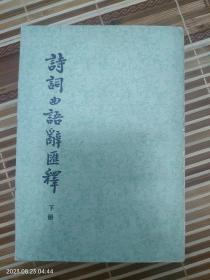 詩詞曲語辭匯釋
下册
2023.08.25 04:44